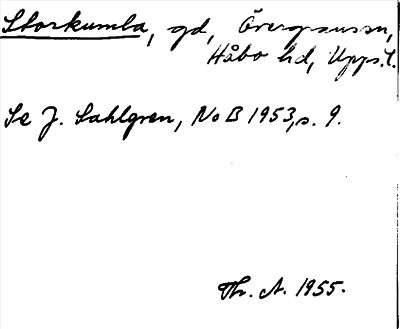 Storkumla, gd, Övergransn,
Håbo hd, Upps.l.
Se J. Sahlgren, NoB 1953, s. 9.
Th. A. 1955.